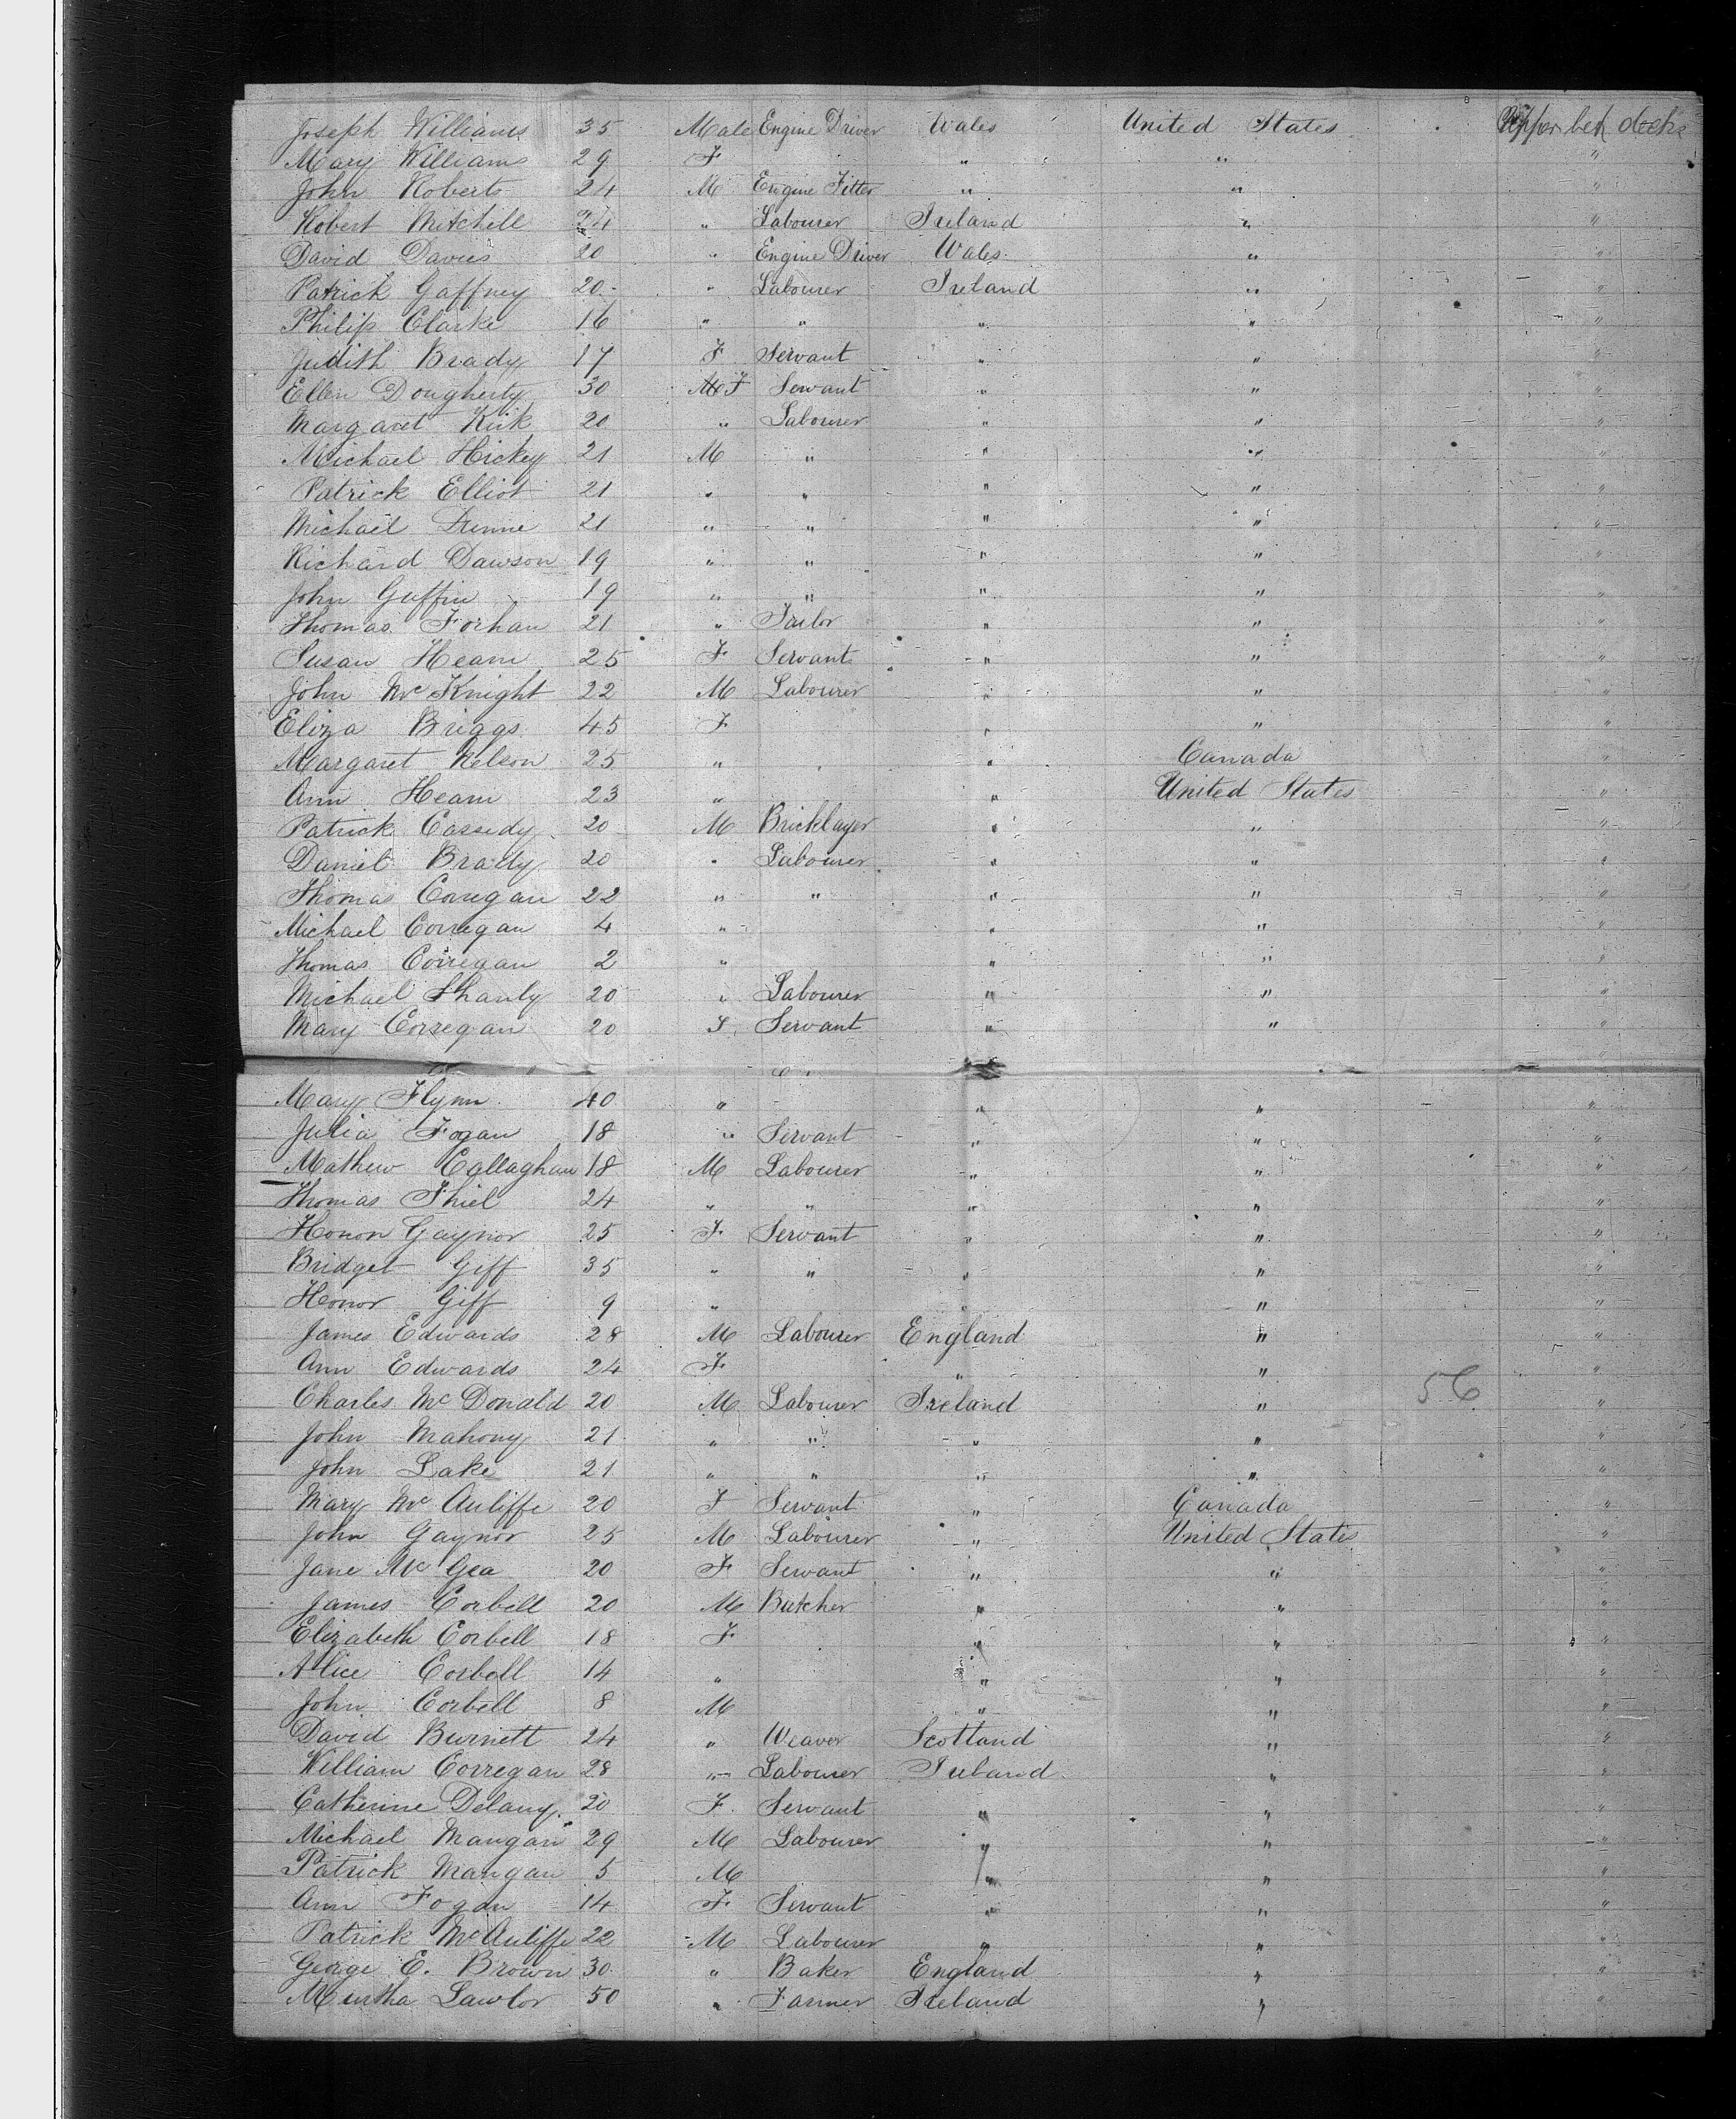 Joseph Williams 35 Male Engine Driver Wales United States Upper bet decks
Mary Williams 29 F " " "
John Roberts 24 M Engine Fitter " " "
Robert Mitchell 24 " Labourer Ireland " "
David Davies 20 " Engine Driver Wales " "
Patrick Gaffney 20 " Labourer Ireland " "
Philip Clarke 16 " " " " "
Judith Brady 17 F Servant " " "
Ellen Dougherty 30 F Servant " " "
Margaret Kirk 20 " Labourer " " "
Michael Hickey 21 M " " " "
Patrick Elliot 21 " " " " "
Michael Dunne 21 " " " " "
Richard Dawson 19 " " " " "
John Guffin 19 " " " " "
Thomas Forhan 21 " Tailor " " "
Susan Hearn 25 F Servant " " "
John Mc Knight 22 M Labourer " " "
Eliza Briggs 45 F " " "
Margaret Nelson 25 " " Canada "
Ann Hearn 23 " " United States "
Patrick Cassidy 20 M Bricklayer " " "
Daniel Brady 20 " Labourer " " "
Thomas Corregan 22 " " " " "
Michael Corregan 4 " " " "
Thomas Corregan 2 " " " "
Michael Shanly 20 " Labourer " " "
Mary Corregan 20 F Servant " " "
Mary Flynn 40 " " " "
Julia Fogan 18 " Servant " " "
Mathew Callaghan 18 M Labourer " " "
Thomas Shiel 24 " " " " "
Honor Gaynor 25 F Servant " " "
Bridget Giff 35 " " " " "
Honor Giff 9 " " " "
James Edwards 28 M Labourer England " "
Ann Edwards 24 F " " "
Charles Mc Donald 20 M Labourer Ireland " 56 "
John Mahony 21 " " " " "
John Lake 21 " " " " "
Mary Mc Auliffe 20 F Servant " Canada "
John Gaynor 25 M Labourer " United States "
Jane Mc Gea 20 F Servant " " "
James Corbell 20 M Butcher " " "
Elizabeth Corbell 18 F " " "
Alice Corbell 14 " " " "
John Corbell 8 M " " "
David Burnett 24 " Weaver Scotland " "
William Corregan 28 " Labourer Ireland " "
Catherine Delany 20 F Servant " " "
Michael Mangan 29 M Labourer " " "
Patrick Mangan 5 M " " "
Ann Fogan 14 F Servant " " "
Patrick McAuliffe 22 M Labourer " " "
George E. Brown 30 " Baker England " "
Murtha Lawlor 50 " Farmer Ireland " "